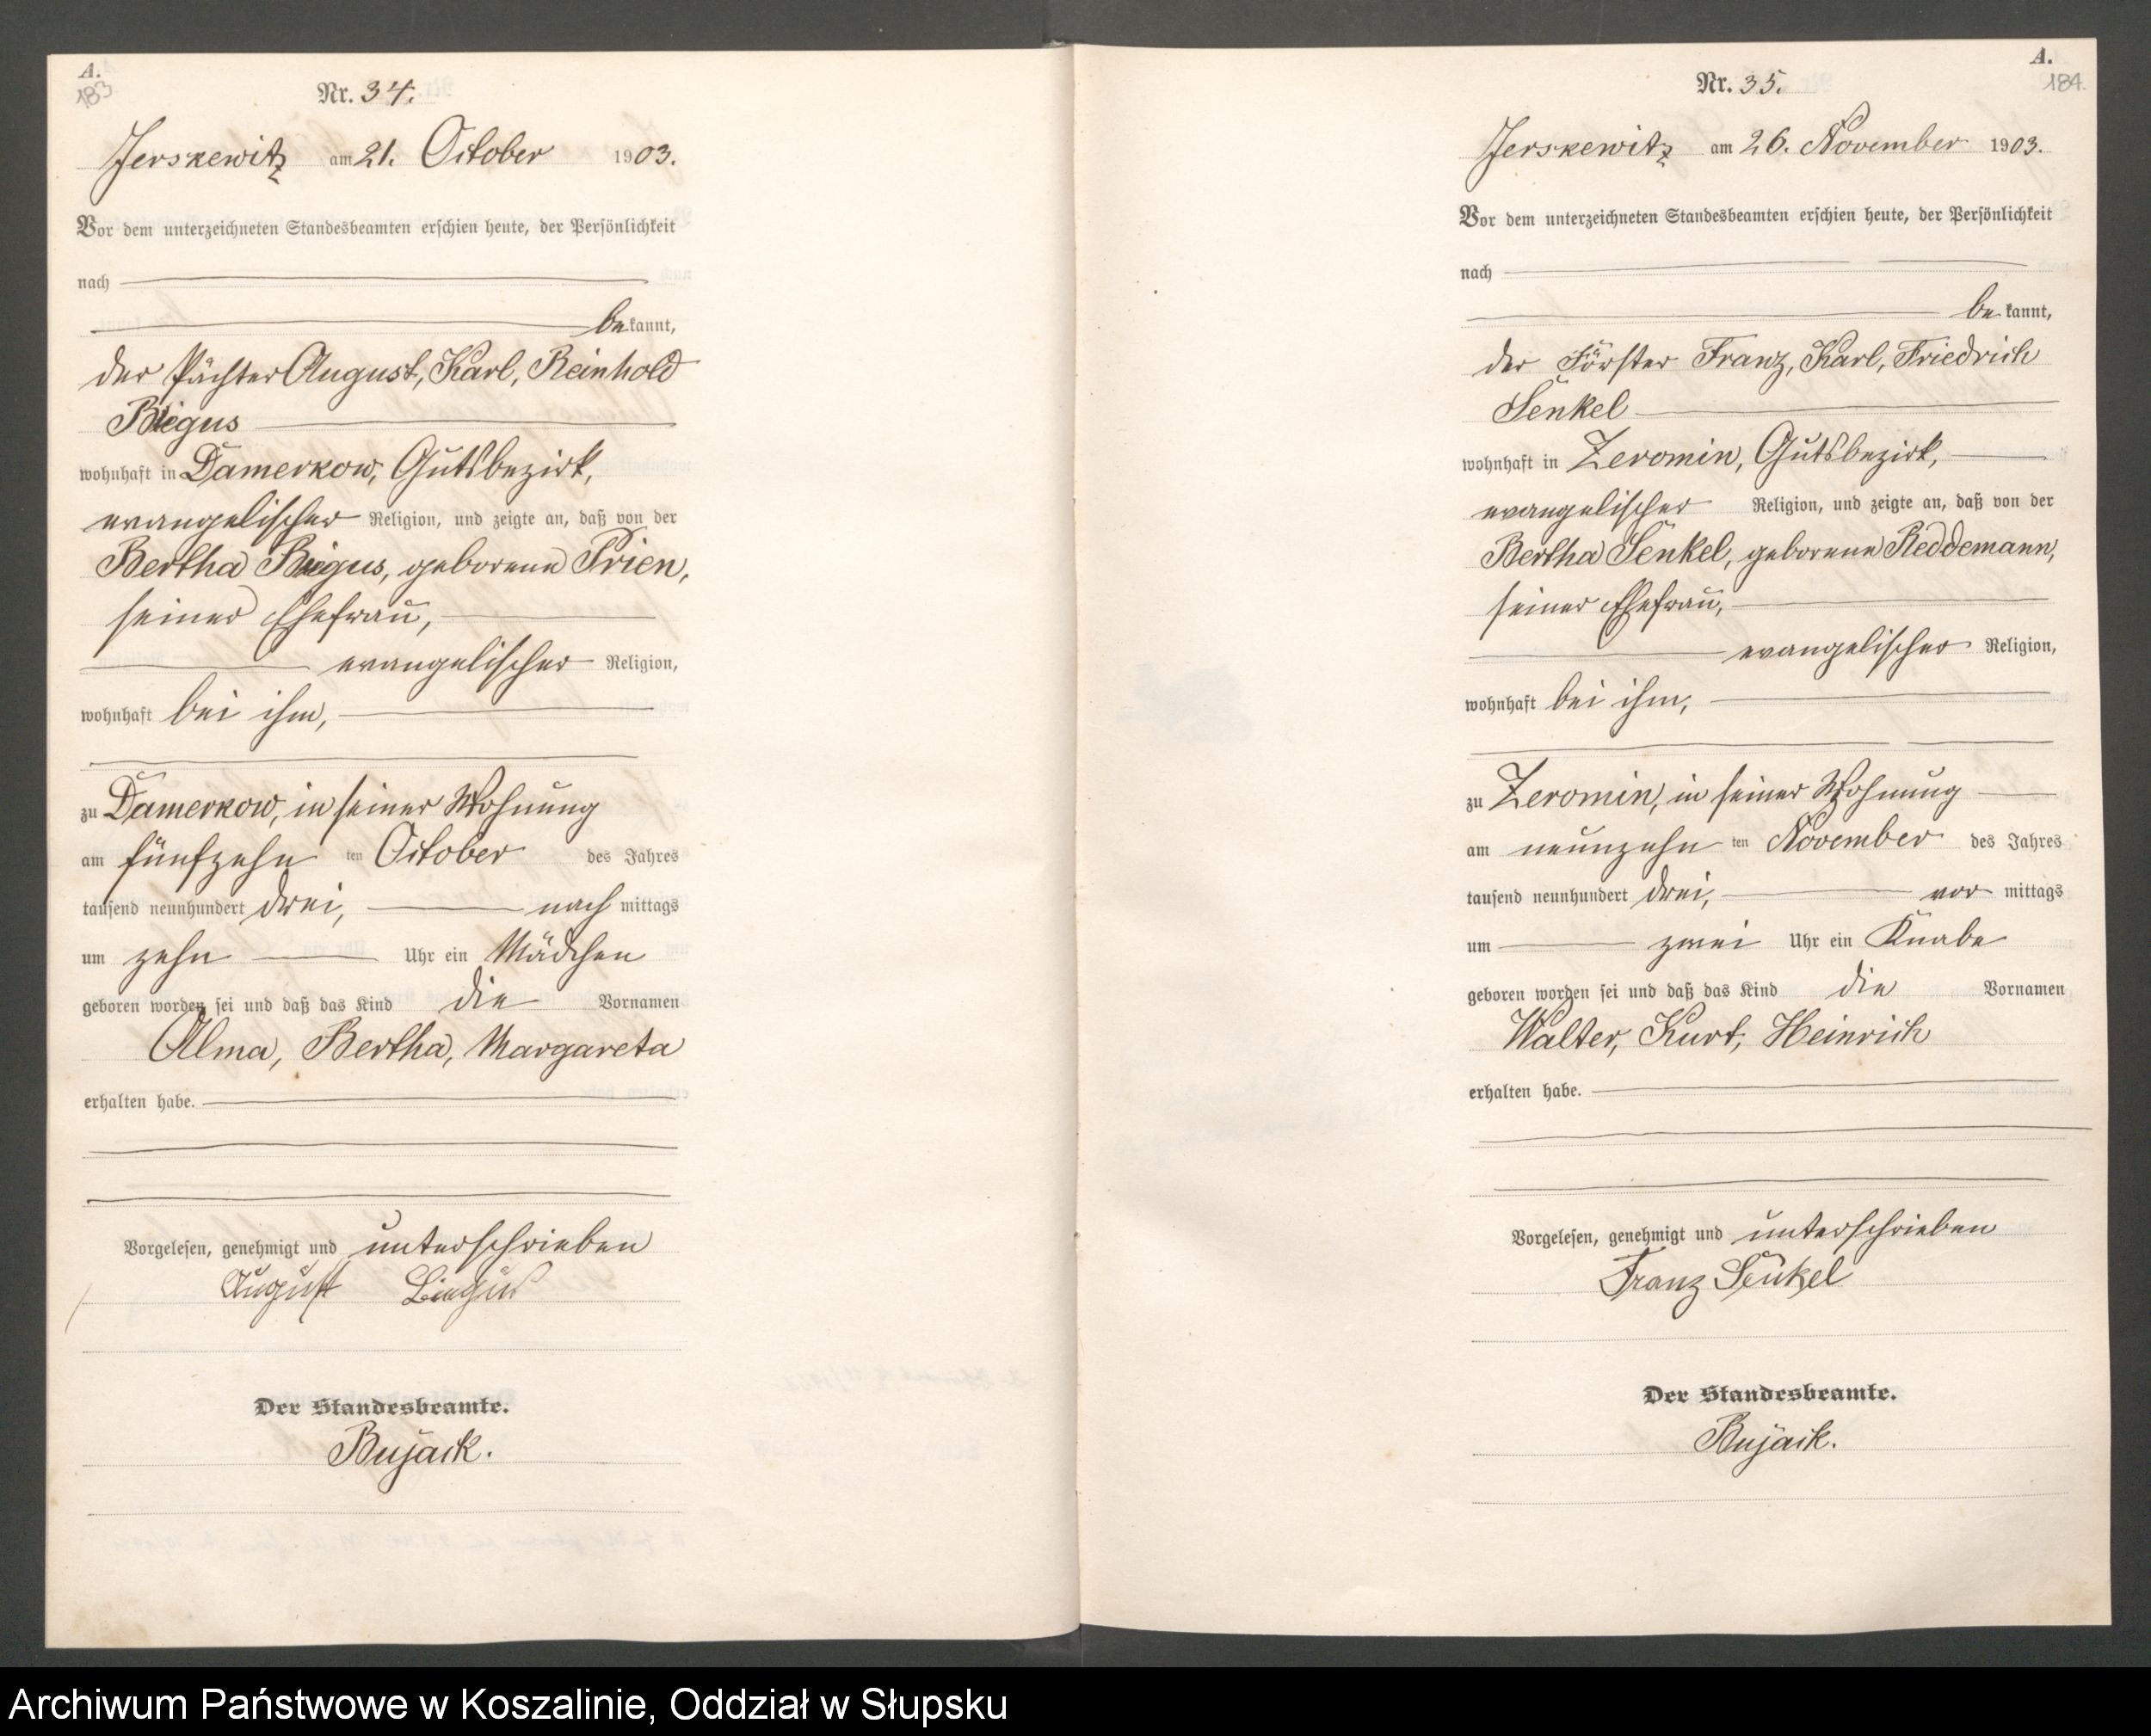 A.
183
Nr. 34.
Jerskewitz am 21. October 1903.
Vor dem unterzeichneten Standesbeamten erschien heute, der Persönlichkeit
nach
be kannt,
der Pächter August, Karl, Reinhold
Biegus
wohnhaft in Damerkow, Gutsbezirk,
evangelischer Religion, und zeigte an, daß von der
Bertha Biegus, geborene Prien,
seiner Ehefrau,
evangelischer Religion,
wohnhaft bei ihm,
zu Damerkow, in seiner Wohnung
am fünfzehn ten October des Jahres
tausend neunhundert drei, nach mittags
um zehn Uhr ein Mädchen
geboren worden sei und daß das Kind die Vornamen
Alma, Bertha, Margareta
erhalten habe.
Vorgelesen, genehmigt und unterschrieben
August
Der Standesbeamte.
Bujack.
A.
184.
Nr. 35.
Jerskewitz am 26. November 1903.
Vor dem unterzeichneten Standesbeamten erschien heute, der Persönlichkeit
nach
be kannt,
der Förster Franz, Karl, Friedrich
Senkel
wohnhaft in Zeromin, Gutsbezirk,
evangelischer Religion, und zeigte an, daß von der
Bertha Senkel, geborene Reddemann,
seiner Ehefrau,
evangelischer Religion,
wohnhaft bei ihm,
zu Zeromin, in seiner Wohnung
am neunzehn ten November des Jahres
tausend neunhundert drei, vor mittags
um zwei Uhr ein Knabe
geboren worden sei und daß das Kind die Vornamen
Walter, Kurt, Heinrich
erhalten habe.
Vorgelesen, genehmigt und unterschrieben
Franz Senkel
Der Standesbeamte.
Bujack.
Archiwum Państwowe w Koszalinie, Oddział w Słupsku